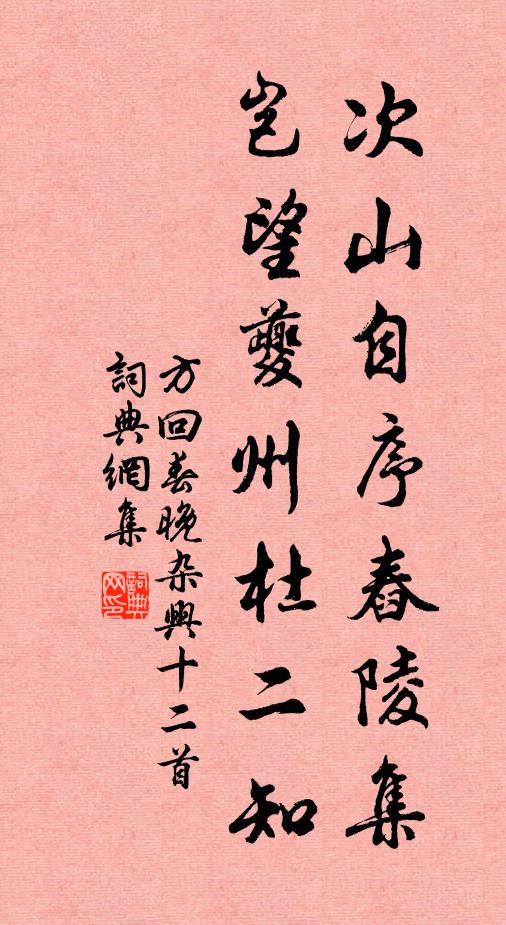 次山自序舂陵集
豈望夔州杜二知
方回春晚杂興十二首
詞典網集
詞典网印